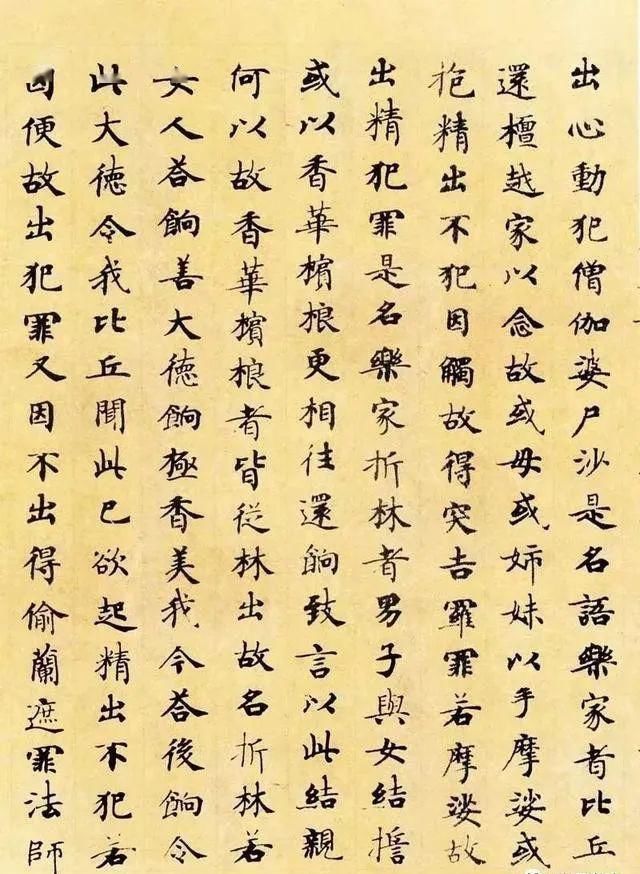 出心動犯僧伽婆尸沙是名語樂家者比丘
還檀越家以念故或母或姉妹以手摩娑或
抱精出不犯因觸故得突吉羅罪若摩娑故
出精犯罪是名樂家折林者男子與女結
或以香華檳桹更相往還餉致言以此結親
何以故香華檳桹者皆從林出故名折林若
女人荅餉善大德餉極香美我今荅後餉令
此大德令我比丘聞此已欲起精出不犯若
因便故出犯罪又因不出得偷蘭遮罪法師